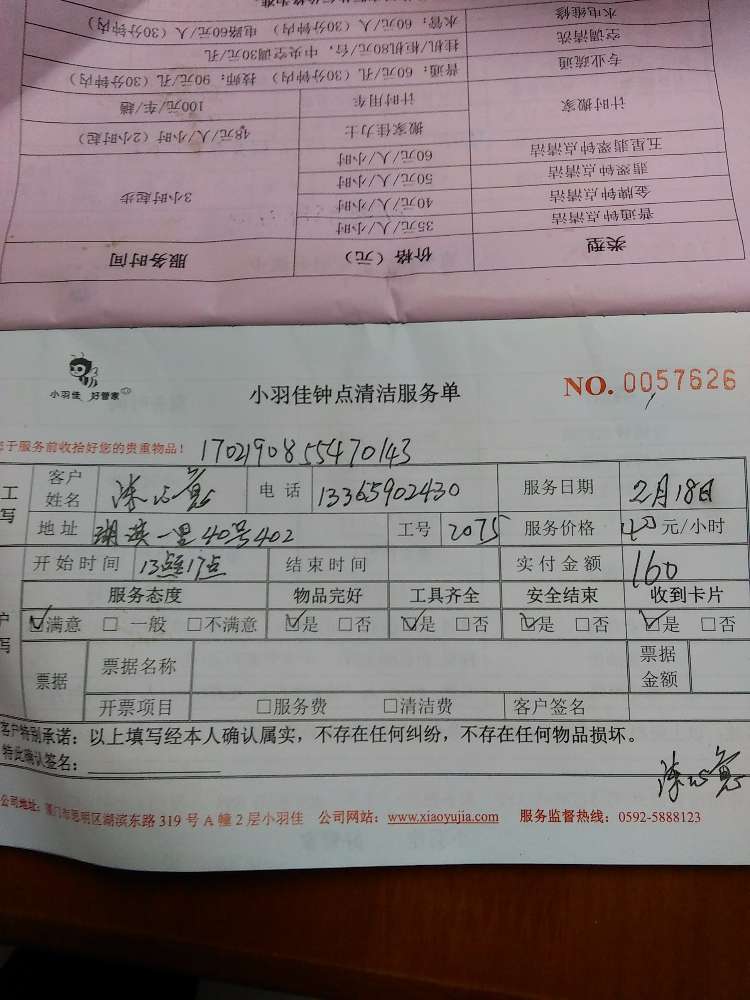 类型 价格（元） 服务时间
普通钟点清洁 35元/人/小时 3小时起步
金牌钟点清洁 40元/人/小时
翡翠钟点清洁 50元/人/小时
五星翡翠钟点清洁 60元/人/小时
计时搬家 搬家佳力士 48元/人/小时（2小时起）
计时用车 100元/车/趟
专业疏通 普通：60元/孔（30分钟内） 技师：90元/孔（30分钟内）
空调清洗 挂机/柜机80元/台，中央空调30元/孔
水电维修 水管：60元/人（30分钟内） 电路60元/人（30分钟内）
小羽佳 好管家
小羽佳钟点清洁服务单
NO. 0057626
于服务前收拾好您的贵重物品！ 1702190855470143
工
写
客户姓名 电话 13365902430 服务日期 2月18日
地址 湖滨一里40号402 工号 2075 服务价格 40元/小时
开始时间 13点至17点 结束时间 实付金额 160
服务态度 物品完好 工具齐全 安全结束 收到卡片
户
写
☑满意 □一般 □不满意 ☑是 □否 ☑是 □否 ☑是 □否 ☑是 □否
票据 票据名称 票据金额
开票项目 □服务费 □清洁费 客户签名
客户特别承诺：以上填写经本人确认属实，不存在任何纠纷，不存在任何物品损坏。
特此确认签名：
公司地址：厦门市思明区湖滨东路319号A幢2层小羽佳 公司网站：www.xiaoyujia.com 服务监督热线：0592-5888123